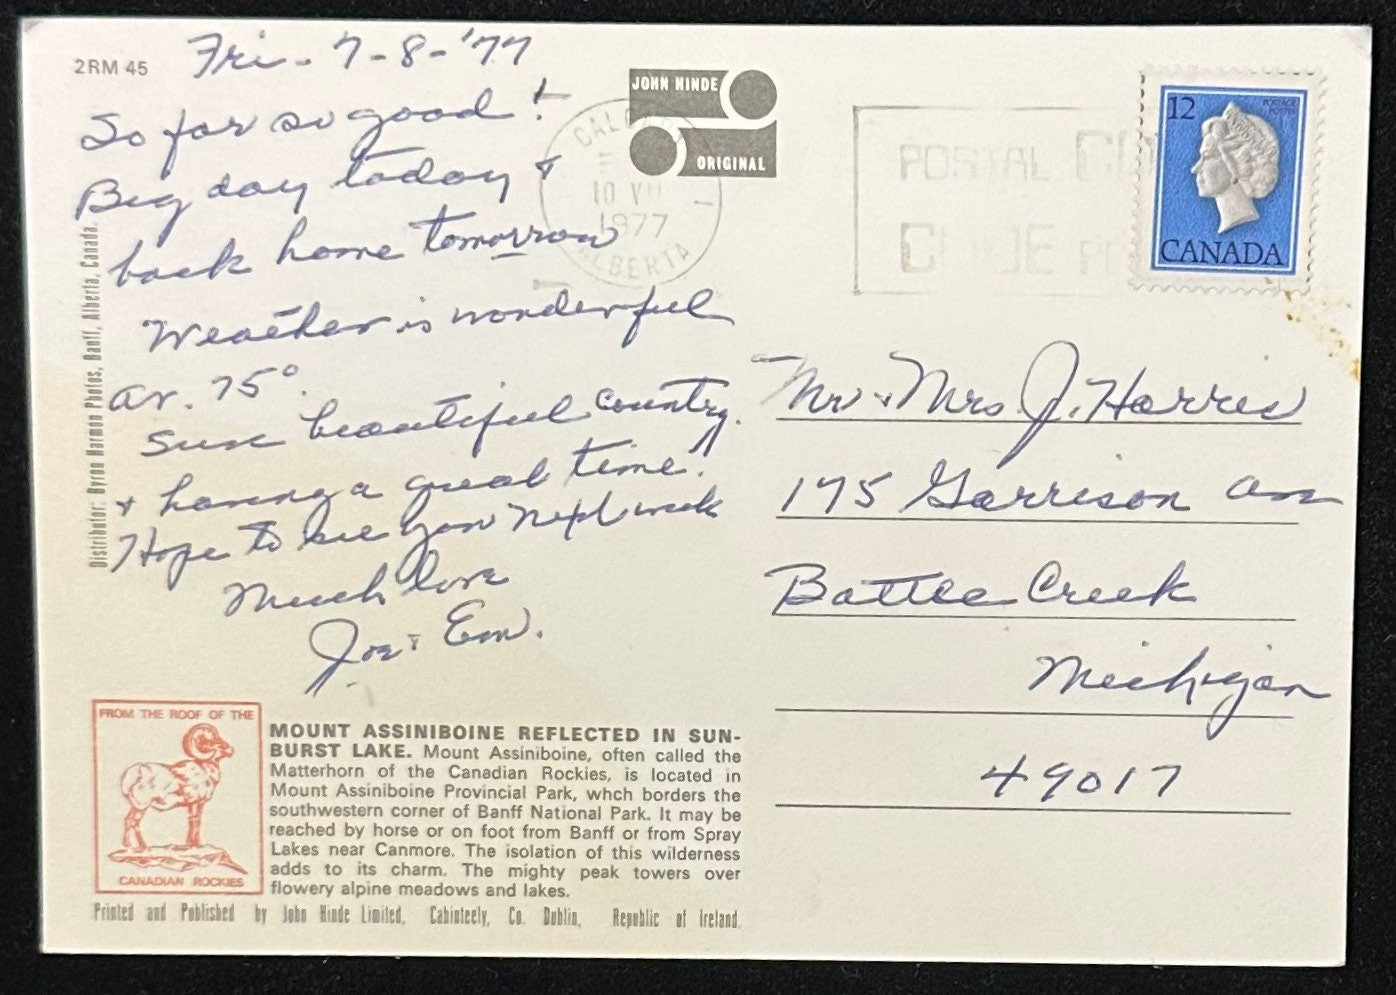 2RM 45
Fri. 7-8-'77
So far so good!
Big day today +
back home tomorrow
Weather is wonderful
av. 75°.
Sure beautiful country.
+ having a great time!
Hope to see you next week
Much love
Joe + Em.
Distributor: Byron Harmon Photos, Banff, Alberta, Canada.
FROM THE ROOF OF THE
CANADIAN ROCKIES
MOUNT ASSINIBOINE REFLECTED IN SUN-
BURST LAKE. Mount Assiniboine, often called the
Matterhorn of the Canadian Rockies, is located in
Mount Assiniboine Provincial Park, whch borders the
southwestern corner of Banff National Park. It may be
reached by horse or on foot from Banff or from Spray
Lakes near Canmore. The isolation of this wilderness
adds to its charm. The mighty peak towers over
flowery alpine meadows and lakes.
Printed and Published by John Hinde Limited, Cabinteely, Co. Dublin, Republic of Ireland
JOHN HINDE
ORIGINAL
10 VII
1977
ALBERTA
POSTAL
12
POSTAGE
POSTES
CANADA
Mr + Mrs J. Harris
175 Garrison Ave
Battle Creek
Michigan
49017